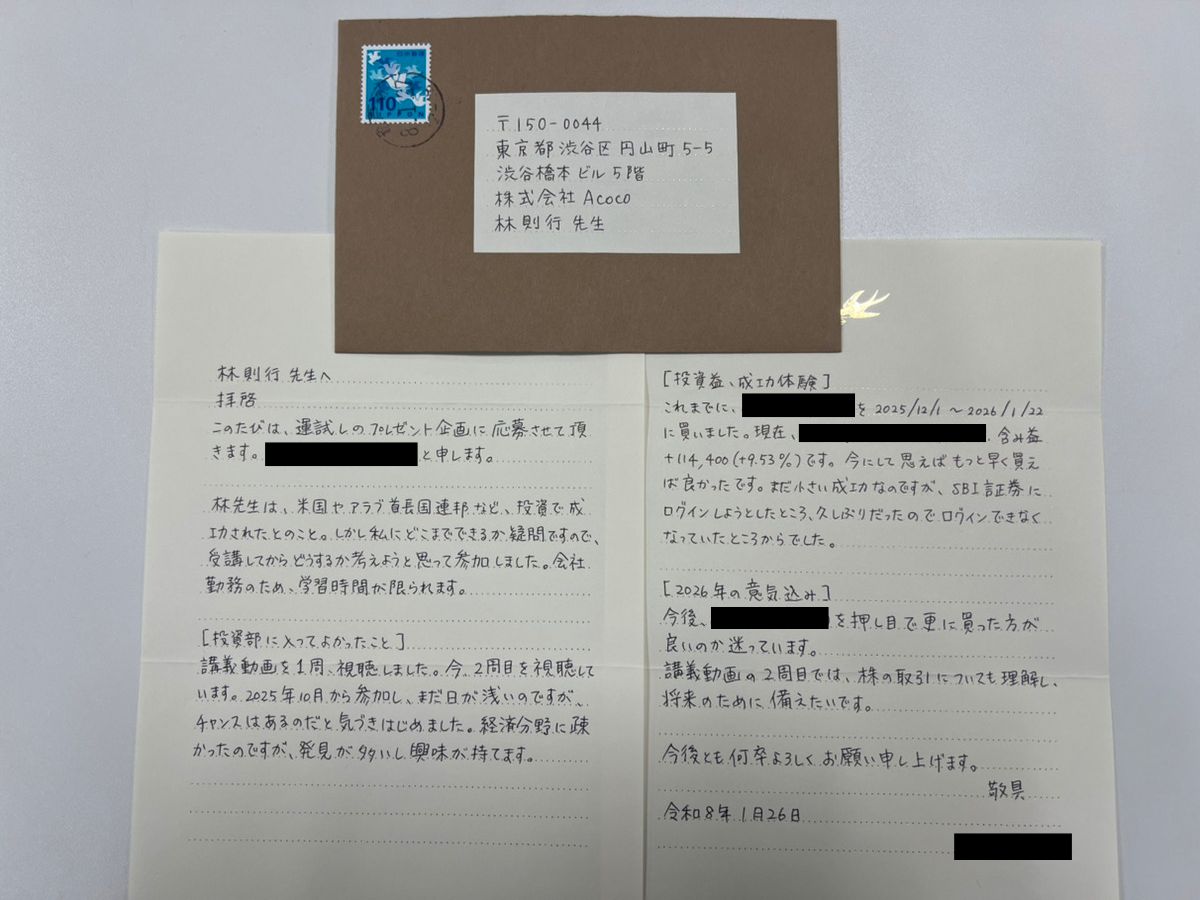 110
NIPPON
〒150-0044
東京都渋谷区円山町5-5
渋谷橋本ビル5階
株式会社Acoco
林則行 先生
林則行 先生へ
拝啓
このたびは、運試しのプレゼント企画に応募させて頂
きます。
と申します。
林先生は、米国やアラブ首長国連邦など、投資で成
功されたとのこと。しかし私にどこまでできるか疑問ですので、
受講してからどうするか考えようと思って参加しました。会社
勤務のため、学習時間が限られます。
[投資部に入ってよかったこと]
講義動画を1周、視聴しました。今、2周目を視聴して
います。2025年10月から参加し、まだ日が浅いのですが、
チャンスはあるのだと気づきはじめました。経済分野に疎
かったのですが、発見が多いし興味が持てます。
[投資益、成功体験]
これまでに、
を2025/12/1～2026/1/22
に買いました。現在、
含み益
+114,400(+9.53%)です。今にして思えばもっと早く買え
ば良かったです。まだ小さい成功なのですが、SBI証券に
ログインしようとしたところ、久しぶりだったのでログインできなく
なっていたところからでした。
[2026年の意気込み]
今後、
を押し目で更に買った方が
良いのか迷っています。
講義動画の2周目では、株の取引についても理解し、
将来のために備えたいです。
今後とも何卒よろしくお願い申し上げます。
敬具
令和8年1月26日